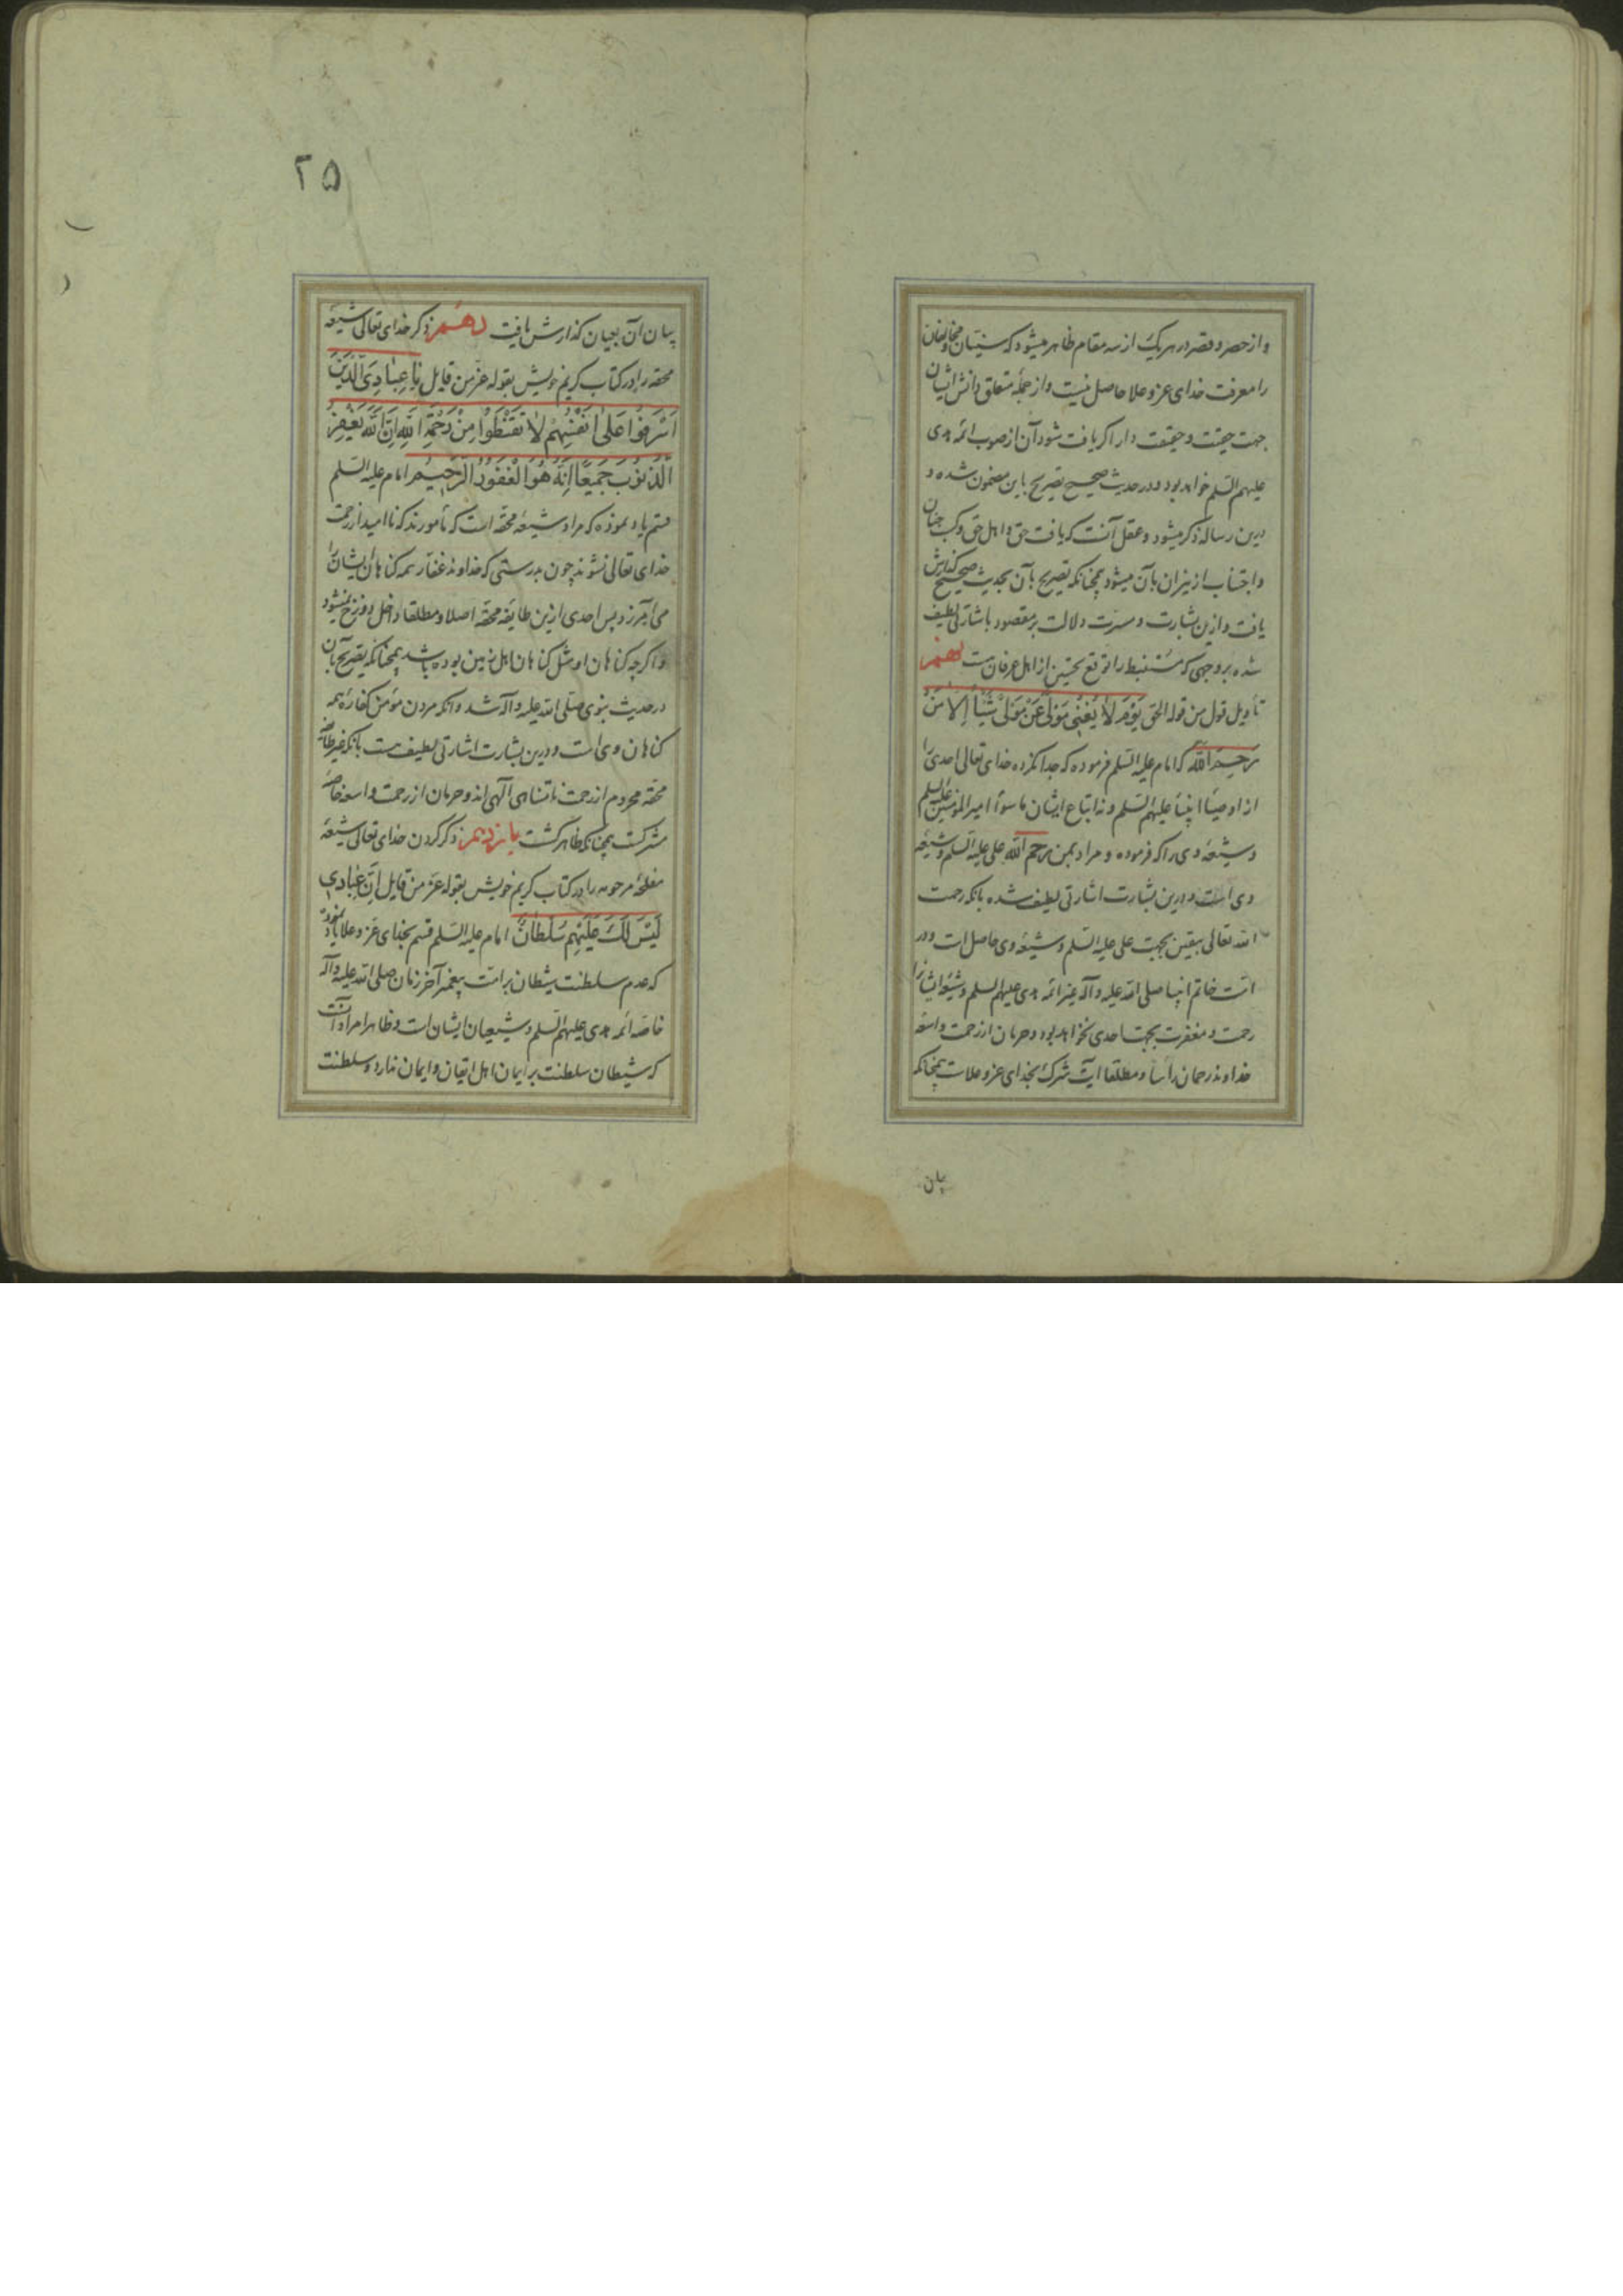 و از حصر و قصر در هر یک از سه مقام ظاهر میشود که سنیان و مخالفان
را معرفت خدای عز و علا حاصل نیست و از جمله متعلق دانش ایشان
جهت حقیت و حقیقت دار اگر یافت شود آن از صوب ائمه هدی
علیهم السلم خواهد بود و در حدیث صحیح تصریح باین مضمون شده و
درین رساله ذکر میشود و عقل آنست که یافت حق و اهل حق و کسب جنان
و اجتناب از نیران بآن میشود همچنانکه تصریح بآن بحدیث صحیح گذارش
یافت و ازین بشارت و مسرت دلالت بر مقصود باشارتی لطیف
شده بر وجهی که مستنبط را توقع تحسین از اهل عرفان هست نهم
تأویل قول من قوله الحق یَوْمَ لاٰ یُغْنِی مَوْلیً عَنْ مَوْلیً شَیْئاً اِلاّٰ مَنْ
رَحِمَ اللّٰه که امام علیه السلم فرموده که جدا نکرده خدای تعالی احدی را
از اوصیا انبیا علیهم السلم و نه اتباع ایشان ما سوا امیر المؤمنین علیه السلم
و شیعه وی را که فرموده و مراد بمن رحم اللّٰه علی علیه السلم و شیعه
وی است و درین بشارت اشارتی لطیف شده بآنکه رحمت
اللّه تعالی بیقین بجهت علی علیه السلم و شیعه وی حاصل است و در
امت خاتم انبیا صلی اللّه علیه و آله غیر ائمه هدی علیهم السلم و شیعه ایشان را
رحمت و مغفرت بجهت احدی نخواهد بود و حرمان از رحمت واسعه
خداوند رحمان راسا و مطلقا آیت شرک بخدای عز و علاست همچنانکه
بیان
۲۵
بیان آن بعیان گذارش یافت دهم ذکر خدای تعالی شیعه
محقه را در کتاب کریم خویش بقوله عز من قایل یٰا عِبٰادِیَ الَّذینَ
اَسْرَفُوا عَلیٰ اَنْفُسِهِمْ لاٰ تَقْنَطُوا مِنْ رَحْمَةِ اللّٰهِ اِنَّ اللّٰهَ یَغْفِرُ
الذُّنُوبَ جَمیعًا اِنَّهُ هُوَ الْغَفُورُ الرَّحیمُ امام علیه السلم
قسم یاد نموده که مراد شیعه محقه است که مأمورند که نا امید از رحمت
خدای تعالی نشوند چون بدرستی که خداوند غفار همه گناهان ایشان را
می آمرزد پس احدی ازین طایفه محقه اصلا و مطلقا داخل دوزخ نمیشود
و اگر چه گناهان او مثل گناهان اهل زمین بوده باشد همچنانکه تصریح بآن
در حدیث نبوی صلی اللّه علیه و آله شد و آنکه مردن مؤمن کفاره همه
گناهان وی است و درین بشارت اشارتی لطیف هست بآنکه غیر طایفه
محقه محروم از رحمت نامتناهی آلهی اند و حرمان از رحمت واسعه خاصه
مشرکست همچنانکه ظاهر گشت یازدهم ذکر کردن خدای تعالی شیعه
مفلحه مرحومه را در کتاب کریم خویش بقوله عز من قایل اِنَّ عِبٰادی
لَیْسَ لَکَ عَلَیْهِم سُلْطٰانٌ امام علیه السلم قسم بخدای عز و علا یاد نموده
که عدم سلطنت شیطان بر امت پیغمبر آخر زمان صلی اللّه علیه و آله
خاصه ائمه هدی علیهم السلم و شیعیان ایشان است و ظاهرا مراد آنست
که شیطان سلطنت بر ایمان اهل ایقان و ایمان ندارد و سلطنت